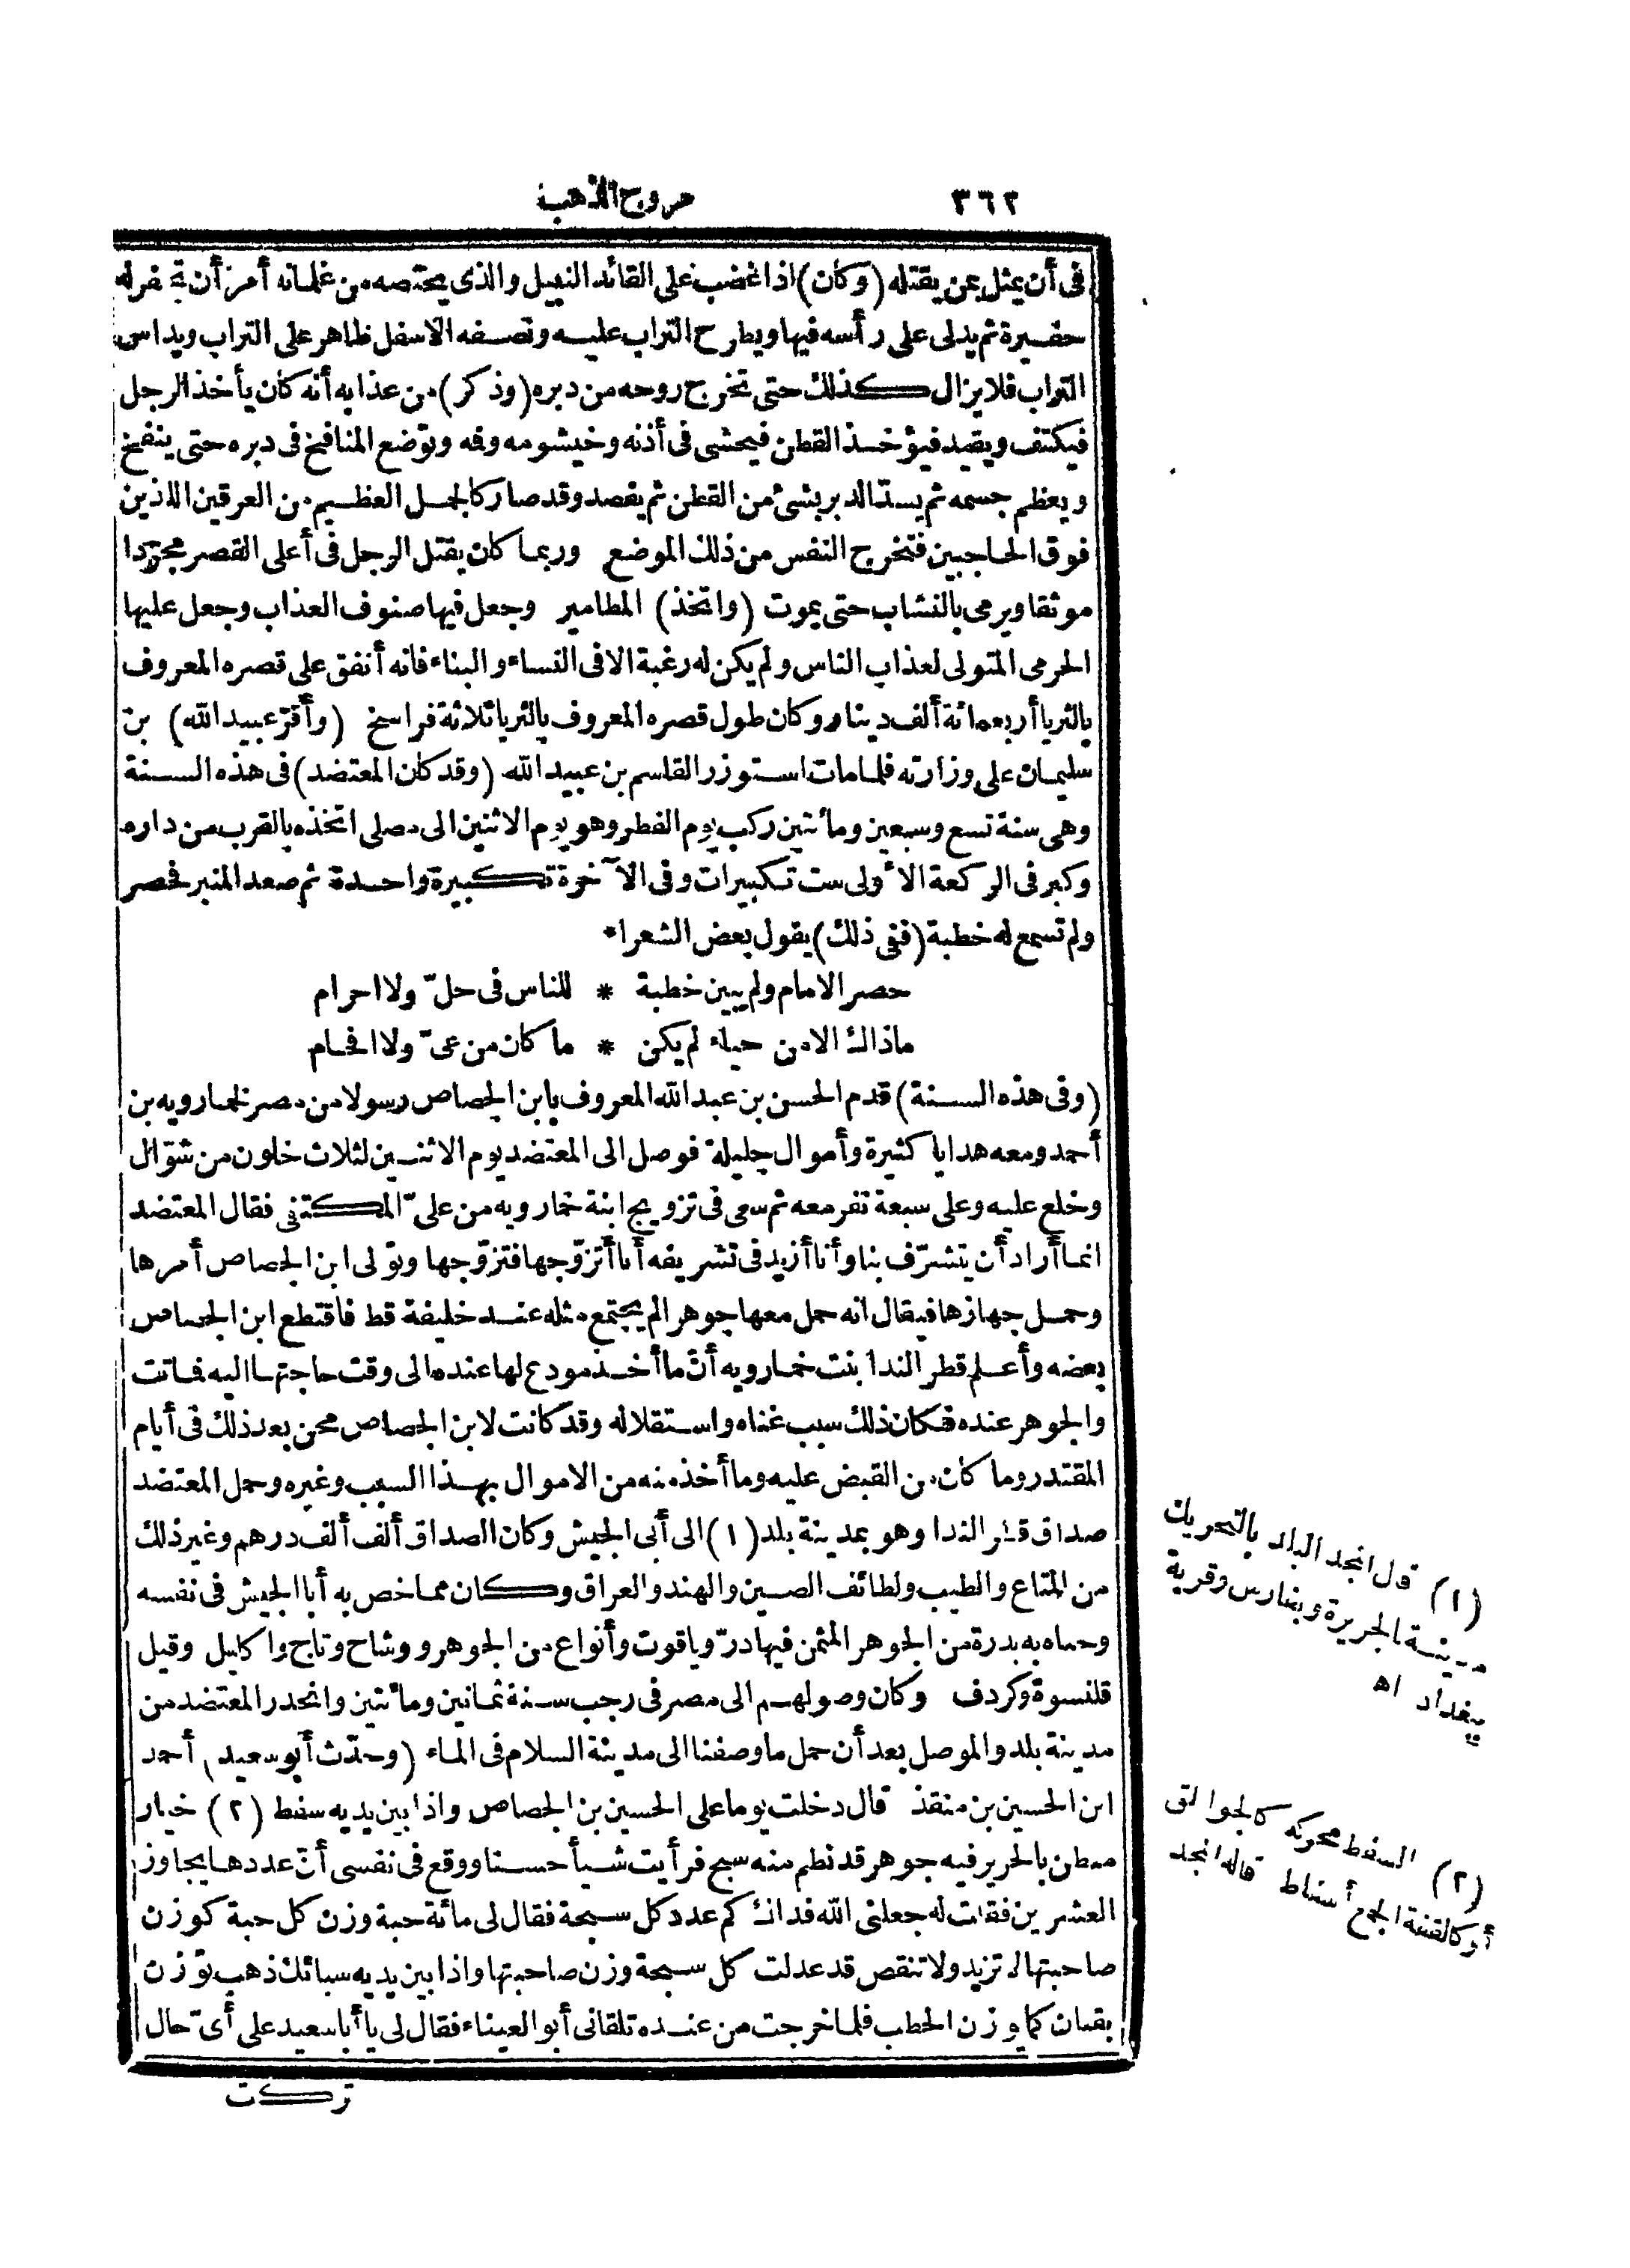 ٣٦٢ مروج الذهب
فى أن يمثل بمن يقتله (وكان) اذا غضب على القائد النبيل والذى يختصه من غلمانه أمر أن تحفر له
حفيرة ثم يدلى على رأسه فيها ويطرح التراب عليه ونصفه الاسفل ظاهر على التراب ويداس
التراب فلا يزال كذلك حتى تخرج روحه من دبره (وذكر) من عذابه أنه كان يأخذ الرجل
فيكتف ويقيد فيؤخذ القطن فيحشى فى أذنه وخيشومه وفه وتوضع المنافخ فى دبره حتى ينتفخ
ويعظم جسمه ثم يسدّ الدبر بشئ من القطن ثم يفصد وقد صار كالجمل العظيم من العرقين اللذين
فوق الحاجبين فتخرج النفس من ذلك الموضع وربما كان يقتل الرجل فى أعلى القصر مجرّدا
موثقا ويرمى بالنشاب حتى يموت (واتخذ) المطامير وجعل فيها صنوف العذاب وجعل عليها
الحرمى المتولى لعذاب الناس ولم يكن له رغبة الا فى النساء والبناء فانه أنفق على قصره المعروف
بالثريا أربعمائة ألف دينار وكان طول قصره المعروف بالثريا ثلاثة فراسخ (وأقرّ عبيد الله) بن
سليمان على وزارته فلما مات استوزر القاسم بن عبيد الله (وقد كان المعتضد) فى هذه السنة
وهى سنة تسع وسبعين ومائتين ركب يوم الفطر وهو يوم الاثنين الى مصلى اتخذه بالقرب من داره
وكبر فى الركعة الأولى ست تكبيرات وفى الآخرة تكبيرة واحدة ثم صعد المنبر فحصر
ولم تسمع له خطبة (ففى ذلك) يقول بعض الشعراء
حصر الامام ولم يبين خطبة * للناس فى حلّ ولا احرام
ماذاك الا من حياء لم يكن * ما كان من عىّ ولا افحام
(وفى هذه السنة) قدم الحسن بن عبد الله المعروف بابن الجصاص رسولا من مصر لخمارويه بن
أحمد ومعه هدايا كثيرة وأموال جليلة فوصل الى المعتضد يوم الاثنين لثلاث خلون من شوّال
وخلع عليه وعلى سبعة نفر معه ثم سعى فى تزويج ابنة خمارويه من علىّ المكتفى فقال المعتضد
انما أراد أن يتشرّف بنا وأنا أزيد فى تشريفه أنا أتزوّجها فتزوّجها وتولى ابن الجصاص أمرها
وحمل جهازها فيقال انه حمل معها جوهرا لم يجتمع مثله عند خليفة قط فاقتطع ابن الجصاص
بعضه وأعلم قطر الندا بنت خمارويه أنّ ما أخذ مودع لها عنده الى وقت حاجتها اليه فماتت
والجوهر عنده فكان ذلك سبب غناه واستقلاله وقد كانت لابن الجصاص محن بعد ذلك فى أيام
المقتدر وما كان من القبض عليه وما أخذ منه من الاموال بهذا السبب وغيره وحمل المعتضد
صداق قطر الندا وهو بمدينة بلد (١) الى أبى الجيش وكان الصداق ألف ألف درهم وغير ذلك
من المتاع والطيب ولطائف الصين والهند والعراق وكان مما خص به أبا الجيش فى نفسه
وحباه به بدرة من الجوهر المثمن فيها درّ وياقوت وأنواع من الجوهر ووشاح وتاج واكليل وقيل
قلنسوة وكردف وكان وصولهم الى مصر فى رجب سنة ثمانين ومائتين وانحدر المعتضد من
مدينة بلد والموصل بعد أن حمل ما وصفنا الى مدينة السلام فى الماء (وحدّث أبو سعيد) أحمد
ابن الحسين بن منقذ قال دخلت يوما على الحسين بن الجصاص واذا بين يديه سفط (٢) خيار
مبطن بالحرير فيه جوهر قد نظم منه سبح فرأيت شيأ حسنا ووقع فى نفسى أنّ عددها يجاوز
العشرين فقلت له جعلنى الله فداك كم عدد كل سبحة فقال لى مائة حبة وزن كل حبة كوزن
صاحبتها لا تزيد ولا تنقص قد عدلت كل سبحة وزن صاحبتها واذا بين يديه سبائك ذهب توزن
بقبان كما يوزن الحطب فلما خرجت من عنده تلقانى أبو العيناء فقال لى يا أبا سعيد على أىّ حال
تركت
(١) قال المجد البلد بالتحريك
مدينة بالجزيرة وبفارس وقرية
ببغداد اه
(٢) السفط محركة كالجوالق
أو كالقفة الجمع أسفاط قاله المجد